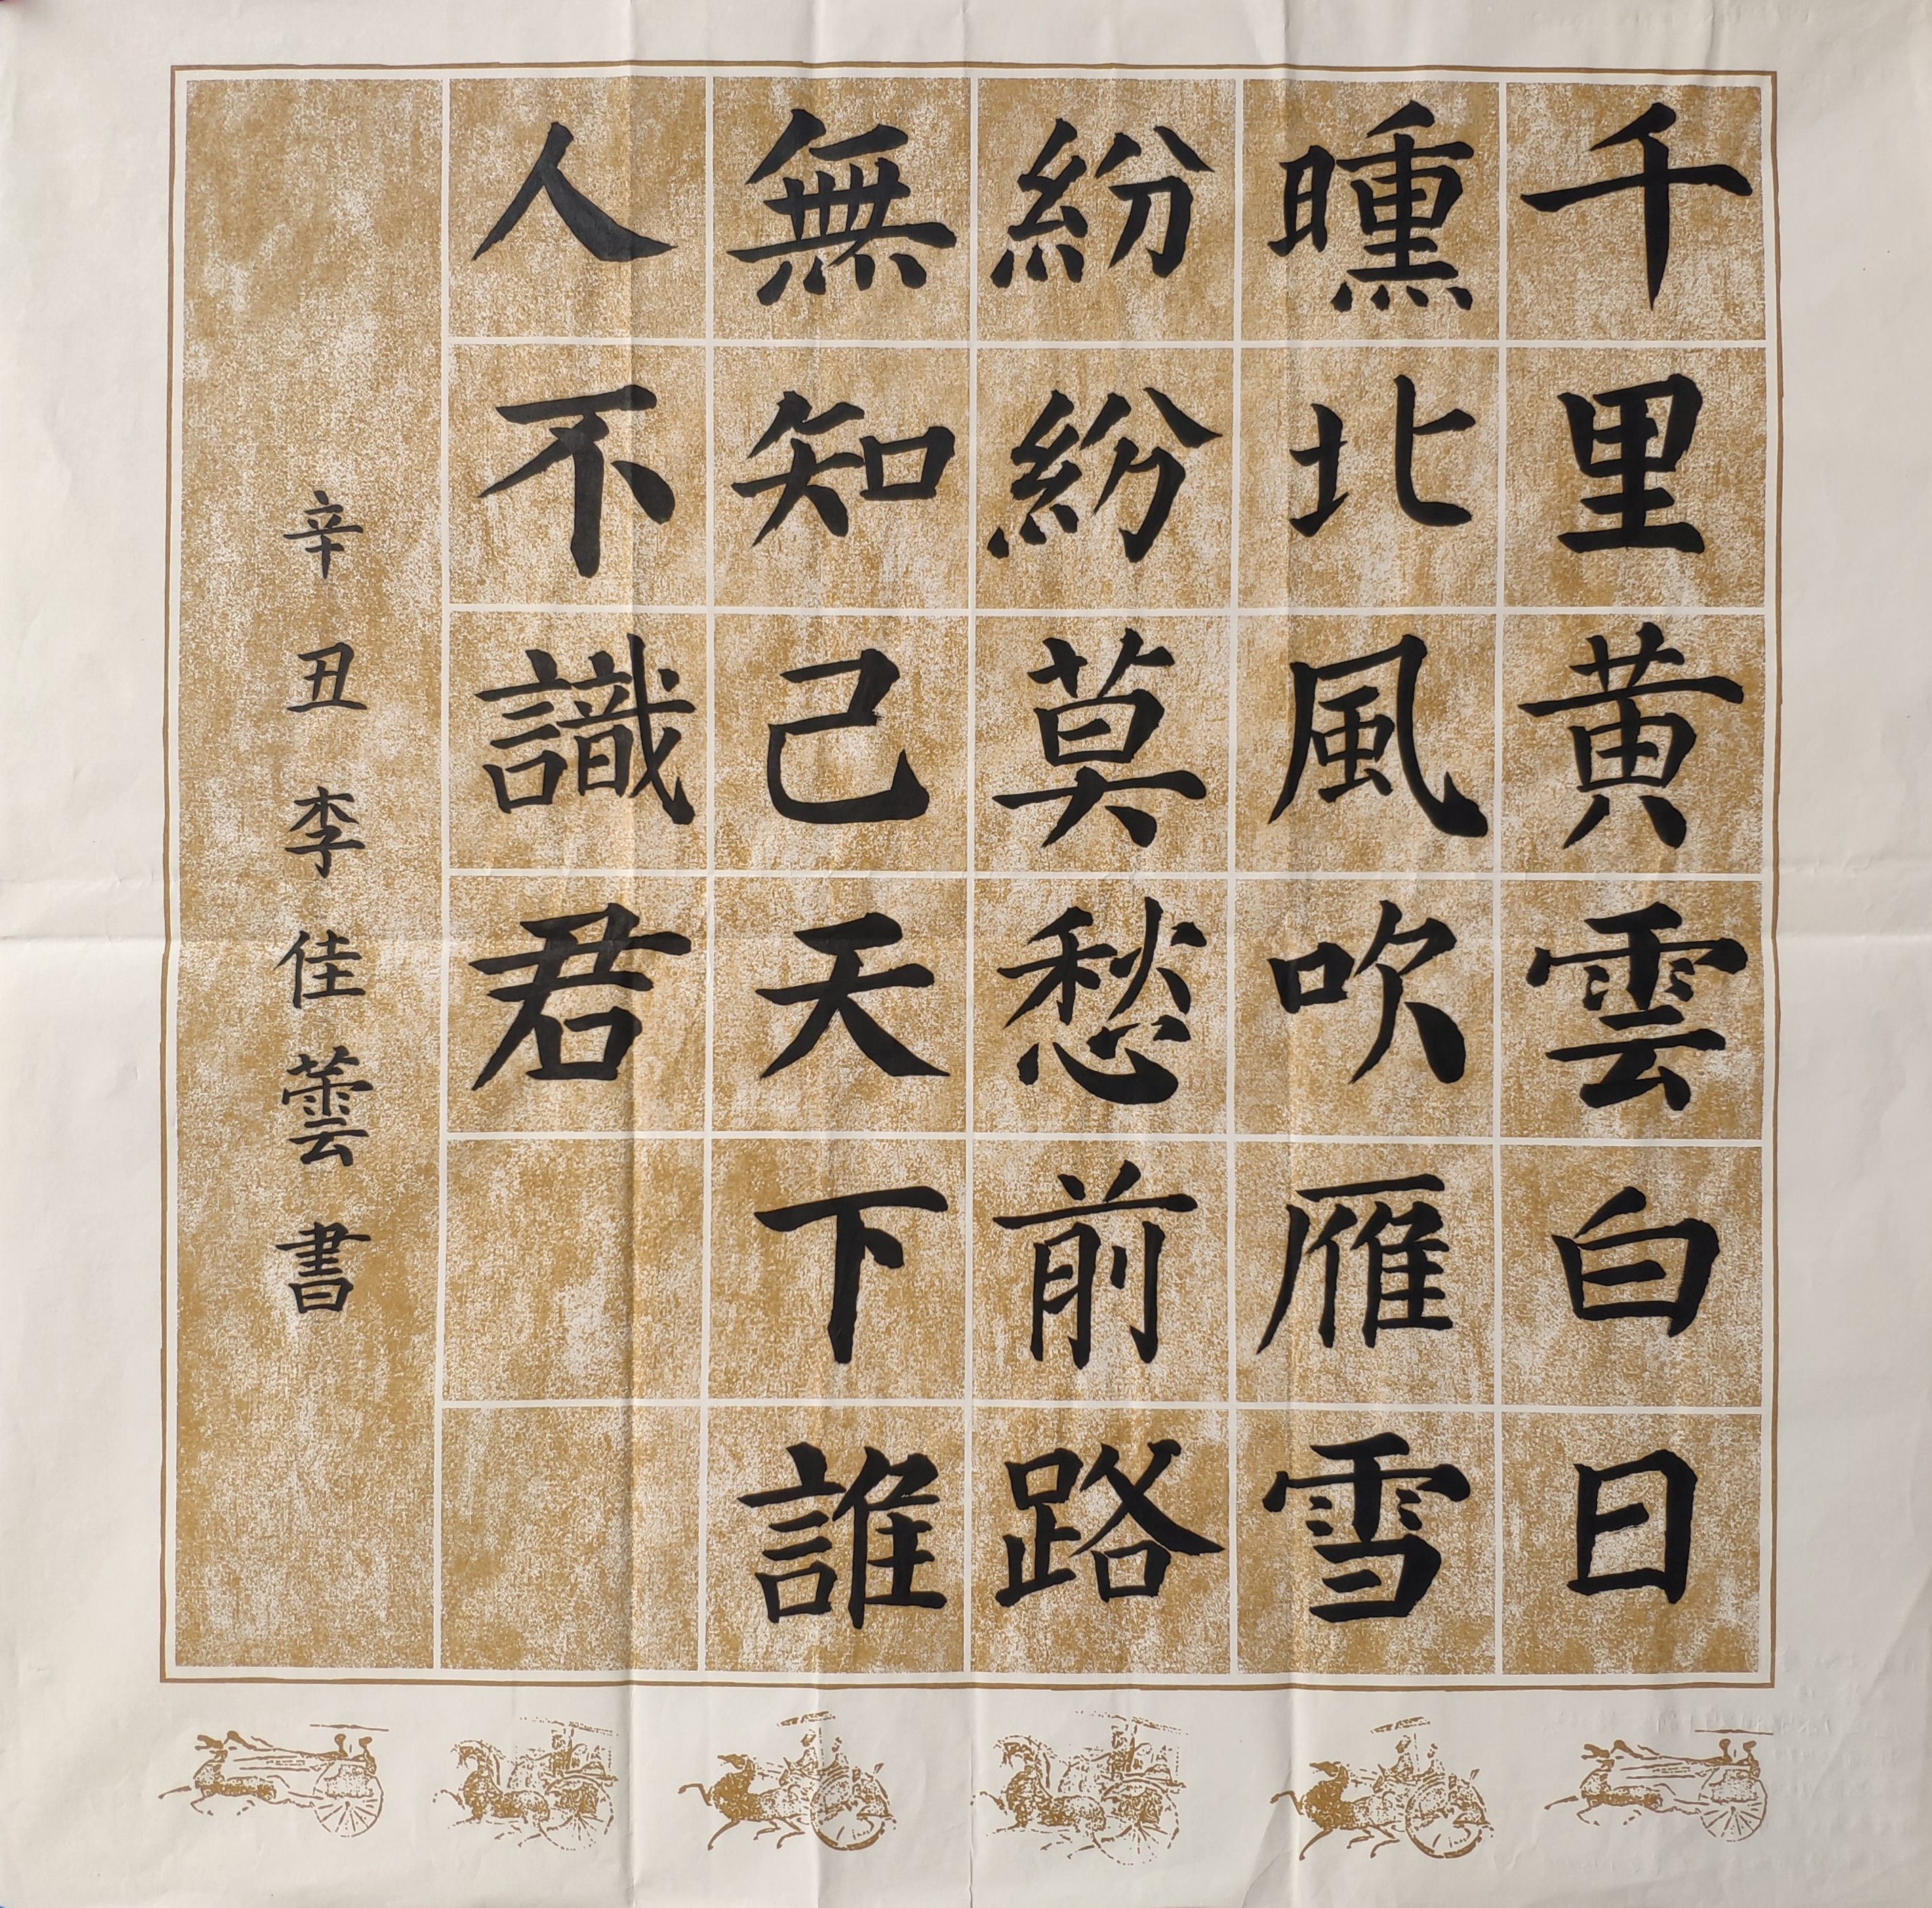 千里黄雲白日
曛北風吹雁雪
紛紛莫愁前路
無知己天下誰
人不識君
辛丑李佳蕓書